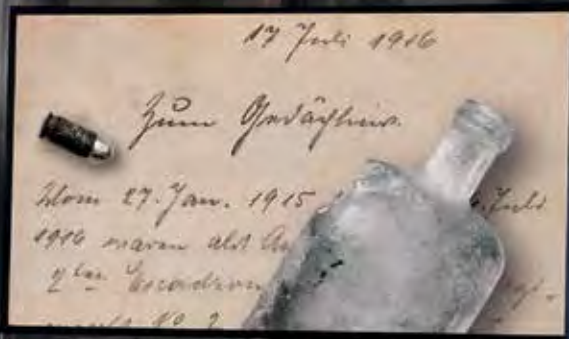 17 Juli 1916
Zum Gedächtnis.
Vom 27. Jan. 1915 Juli
1916 waren als
2ten Escadron
No 2